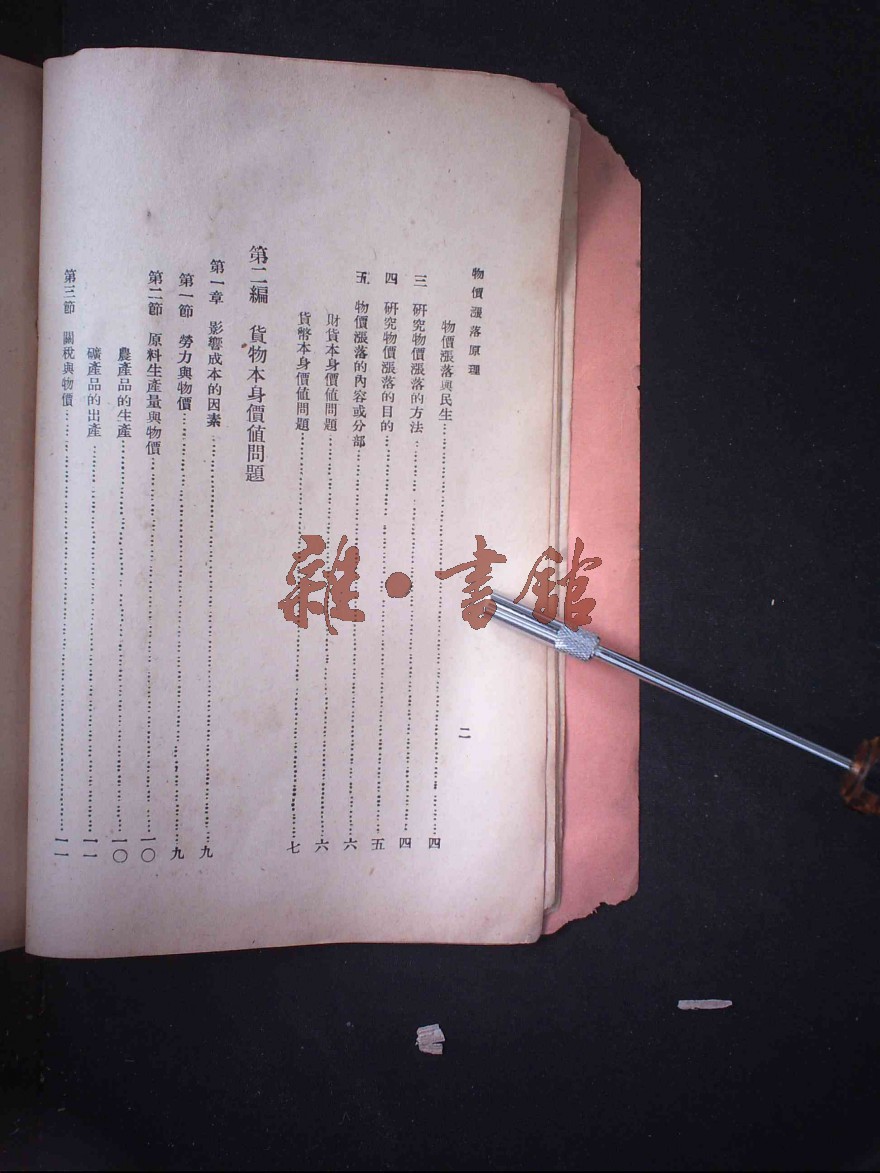 物價漲落原理
二
物價漲落與民生……四
三 研究物價漲落的方法……四
四 研究物價漲落的目的……五
五 物價漲落的內容或分部……六
財貨本身價值問題……六
貨幣本身價值問題……七
第二編 貨物本身價值問題
第一章 影響成本的因素……九
第一節 勞力與物價……九
第二節 原料生產量與物價……一〇
農產品的生產……一〇
礦產品的出產……一一
第三節 關稅與物價……一一
雜·書館